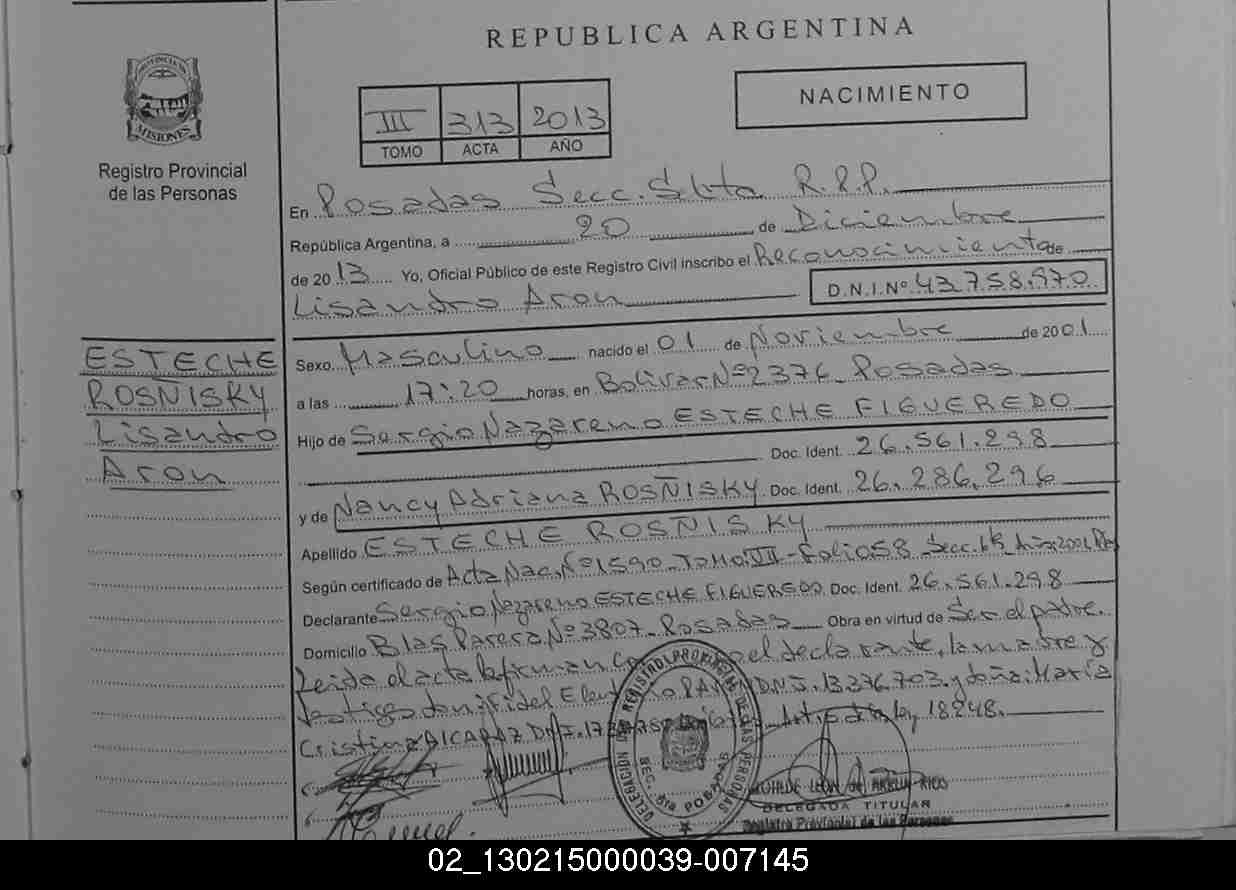 REPUBLICA ARGENTINA
PROVINCIA DE
MISIONES
Registro Provincial
de las Personas
III 313 2013
TOMO ACTA AÑO
NACIMIENTO
En Posadas Secc. Sexta R.P.P.
República Argentina, a 20 de Diciembre
de 2013 Yo, Oficial Público de este Registro Civil inscribo el Reconocimiento de
Lisandro Aron D.N.I.Nº 43.758.970
ESTECHE
ROSÑISKY
Lisandro
Aron
Sexo Masculino nacido el 01 de Noviembre de 2001
a las 17:20 horas, en Bolivar Nº 2376 Posadas
Hijo de Sergio Nazareno ESTECHE FIGUEREDO
Doc. Ident. 26.561.298
y de Nancy Adriana ROSÑISKY Doc. Ident. 26.286.296
Apellido ESTECHE ROSÑISKY
Según certificado de Acta Nac. Nº 1590 Tomo VII - Folio 58 Secc.
Declarante Sergio Nazareno ESTECHE FIGUEREDO Doc. Ident. 26.561.298
Domicilio Blas Parera Nº 3807 Posadas Obra en virtud de Ser el padre.
Leida el acta la firman el declarante, la madre y
testigos don: Fidel D.N.I. 13.376.703 y doña: María
Cristina ley 18.248.
DELEGADA TITULAR
Registro Provincial de las Personas
02_130215000039-007145